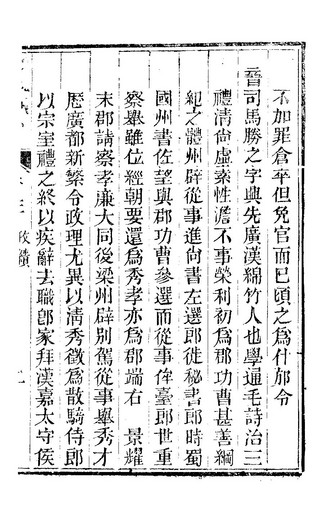 不加罪倉卒但免官而巳頃之爲什邡令
晉司馬勝之字興先廣漢綿竹人也學通毛詩治三
禮清尚虛素性澹不事榮利初爲郡功曹甚善綱
紀之體州辟從事進尚書左選郎徙秘書郎時蜀
國州書佐望與郡功曹參選而從事侔臺郎世重
察舉雖位經朝要還爲秀孝亦爲郡端右　景耀
末郡請察孝廉大同後梁州辟別駕從事舉秀才
歷廣都新繁令政理尤異以清秀徵爲散騎侍郎
以宗室禮之終以疾辭去職即家拜漢嘉太守俟
政績